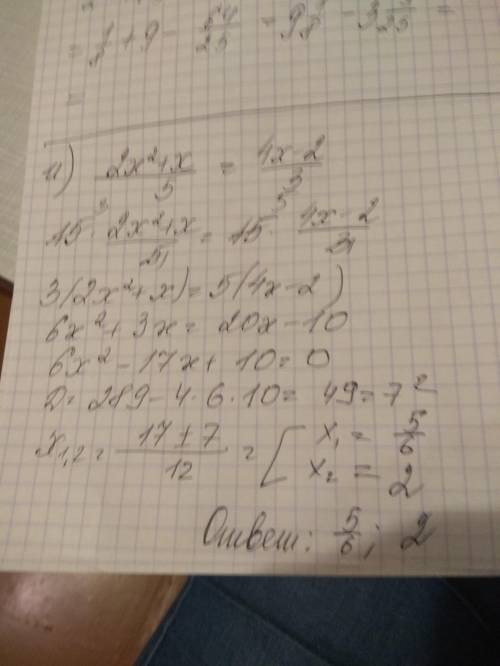 = 1/2 + 9 - 54/25 = 9 - 3 =
=
и) (2x²+x)/5 = (4x-2)/3
15³ · (2x²+x)/5₁ = 15⁵ · (4x-2)/3₁
3(2x²+x) = 5(4x-2)
6x²+3x = 20x-10
6x²-17x+10=0
D= 289-4·6·10= 49=7²
x₁,₂ = (17±7)/12 = [ x₁ = 5/6
x₂ = 2
Ответ: 5/6; 2